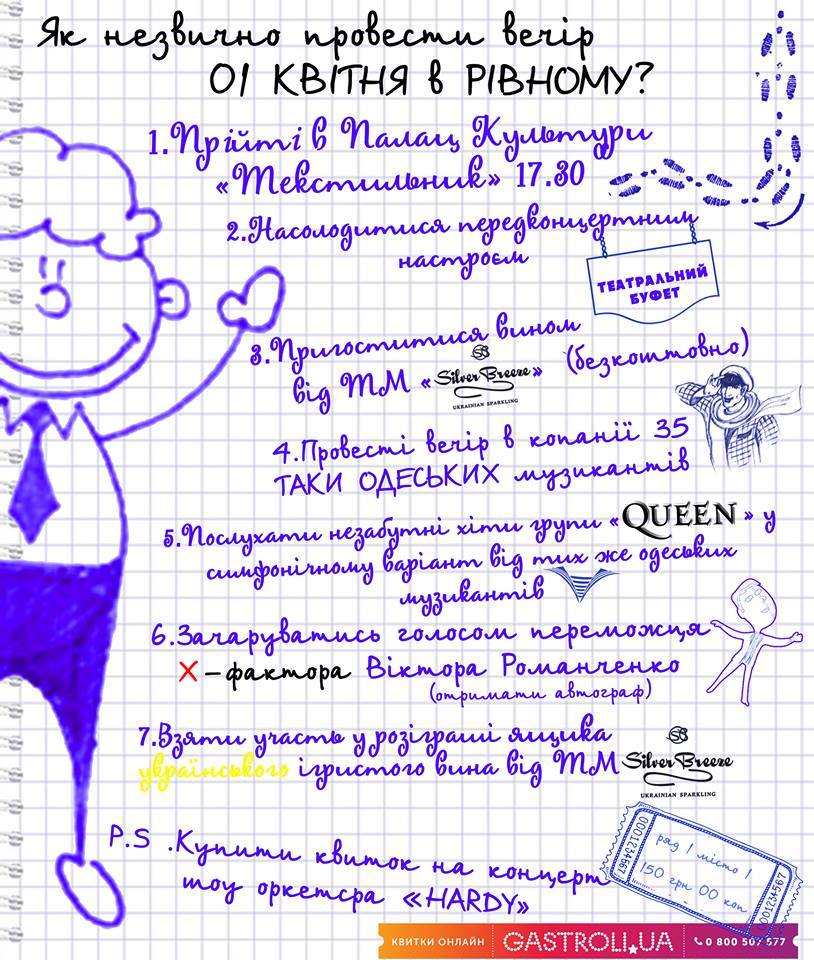 Як незвично провести вечір
01 КВІТНЯ в РІВНОМУ?
1.Прійті в Палац Культури
«Текстильник» 17.30
2.Насолодитися передконцертним
настроєм
ТЕАТРАЛЬНИЙ
БУФЕТ
3.Пригоститися вином
від ТМ «Silver Breeze» (безкоштовно)
SB
UKRAINIAN SPARKLING
4.Провесті вечір в копанії 35
ТАКИ ОДЕСЬКИХ музикантів
5.Послухати незабутні хіти групи «QUEEN» у
симфонічному варіант від тих же одеських
музикантів
6.Зачаруватись голосом переможця
X – фактора Віктора Романченко
(отримати автограф)
7.Взяти участь у розіграші ящика
українського ігристого вина від ТМ Silver Breeze
SB
UKRAINIAN SPARKLING
P.S .Купити квиток на концерт
шоу оркетсра «HARDY»
0001234567
ряд 1 місто 1
150 грн 00 коп
0001234567
КВИТКИ ОНЛАЙН GASTROLI.UA 0 800 507 577